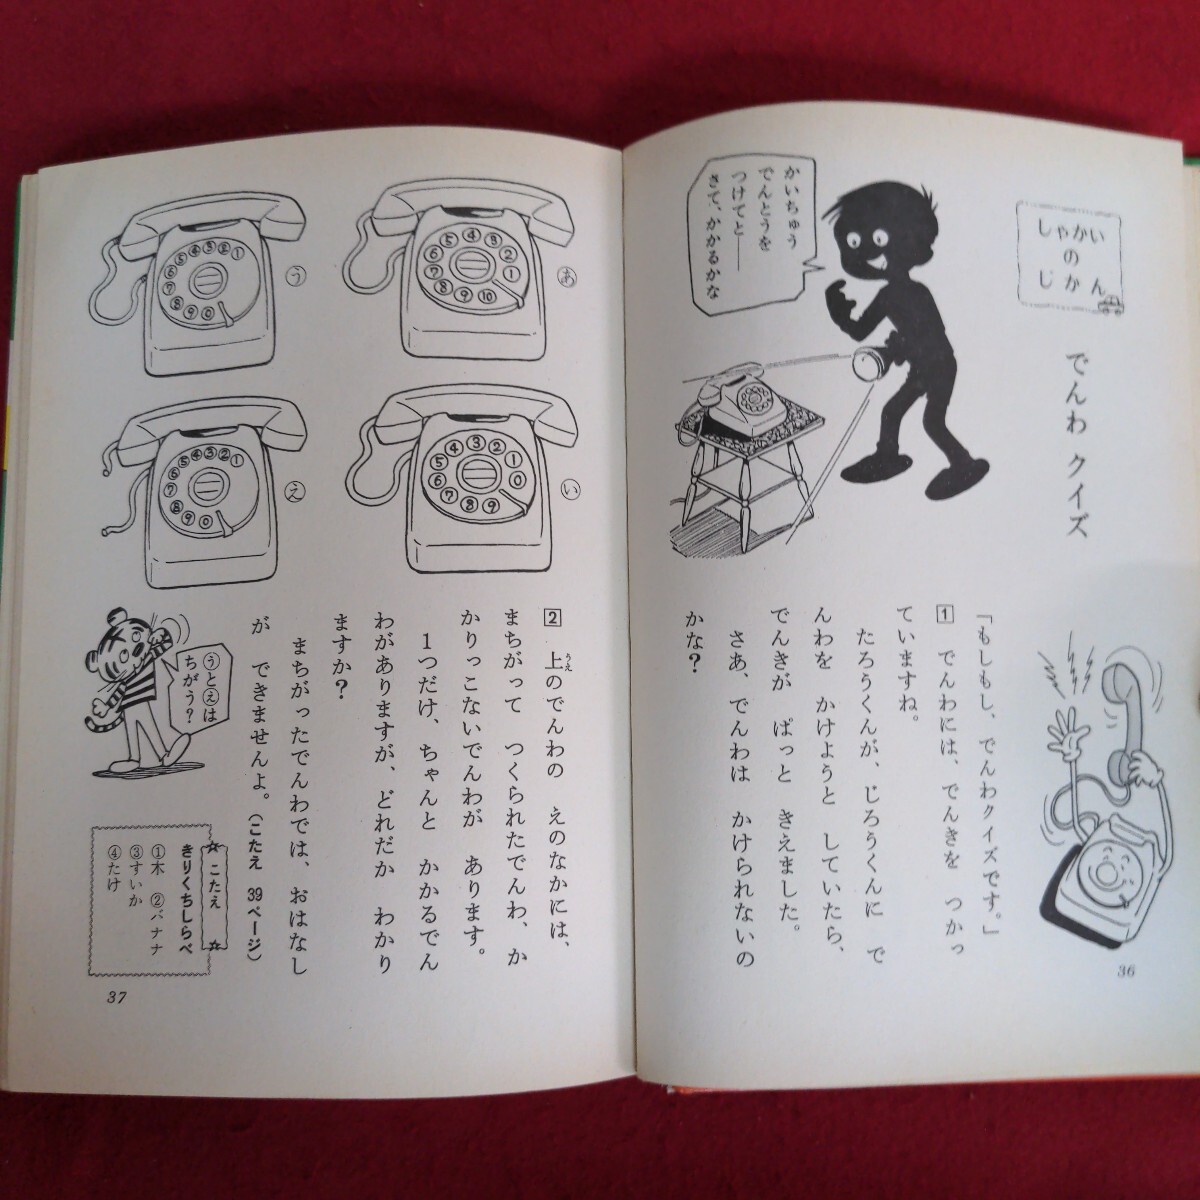 しゃかい
の
じかん
でんわ クイズ
かいちゅう
でんとうを
つけてと――
さて、かかるかな
「もしもし、でんわクイズです。」
1 でんわには、でんきを つかっ
ていますね。
たろうくんが、じろうくんに で
んわを かけようと していたら、
でんきが ぱっと きえました。
さあ、でんわは かけられないの
かな?
36
あ
1234567890
い
1234567890
う
1234567890
え
1234567890
2 上のでんわの えのなかには、
うえ
まちがって つくられたでんわ、か
かりっこないでんわが あります。
1つだけ、ちゃんと かかるでん
わがありますが、どれだか わかり
ますか?
まちがったでんわでは、おはなし
が できませんよ。(こたえ 39ページ)
うとえは
ちがう?
☆こたえ☆
きりくちしらべ
①木 ②バナナ
③すいか
④たけ
37